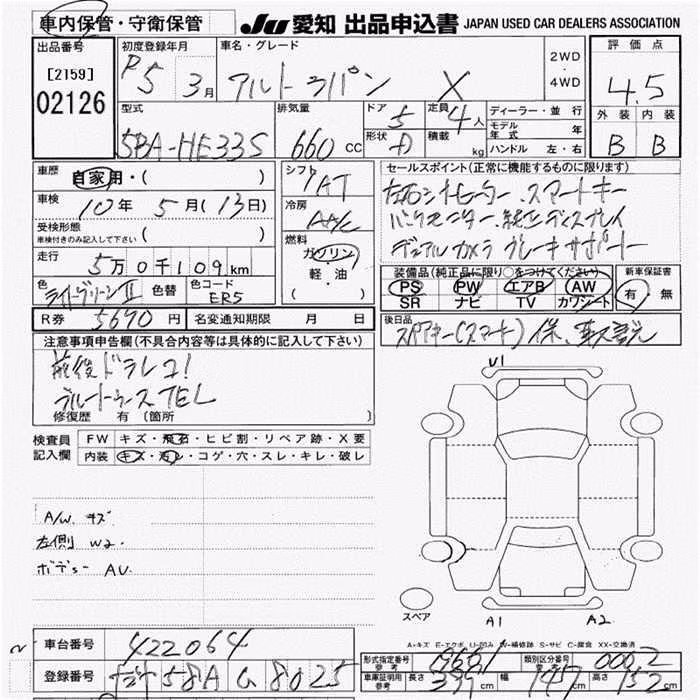 車内保管・守衛保管
JU 愛知 出品申込書 JAPAN USED CAR DEALERS ASSOCIATION
出品番号
[2159]
02126
初度登録年月
R5 3月
車名・グレード
アルトラパン X
2WD
・
4WD
評価点
4.5
外装 内装
B B
型式
5BA-HE33S
排気量
660 CC
ドア 5
形状 D
定員 4人
積載 kg
ディーラー・並行
モデル年式 年
ハンドル 左・右
車歴
自家用・( )
車検
10年 5月(13日)
受検形態
車検付きのみ記入して下さい ( )
走行
5万0千109km
色 ライトグリーンII 色替 色コード ER5
R券 5690円 名変通知期限 月 日
シフト
IAT
冷房
AAC
燃料
ガソリン
軽・油
( )
セールスポイント(正常に機能するものに限ります)
左右シートヒーター、スマートキー
バックモニター、純正ディスプレイ
デュアルカメラブレーキサポート
装備品(純正品に限り○をつけてください)
PS PW エアB AW
SR ナビ TV カワシート
新車保証書
有・無
後日品
スペアキー(スマート)保、
注意事項申告欄(不具合内容等は具体的に記入して下さい)
前後ドラレコ!
ブルートゥースTEL
修復歴 有〔箇所 〕
検査員記入欄
FW キズ・飛石・ヒビ割・リペア跡・X要
内装 キズ・汚レ・コゲ・穴・スレ・キレ・破レ
A/W. キズ
左側 W2.
ボデー AU.
U1
A1 A2
スペア
A=キズ E=エクボ U=凹み W=補修跡 S=サビ C=腐食 XX=交換済
車台番号 422064
登録番号 58A 8025
形式指定番号参考 類別区分番号参考 0002
車庫証明用参考 長さ 339cm 幅 147cm 高さ 152cm